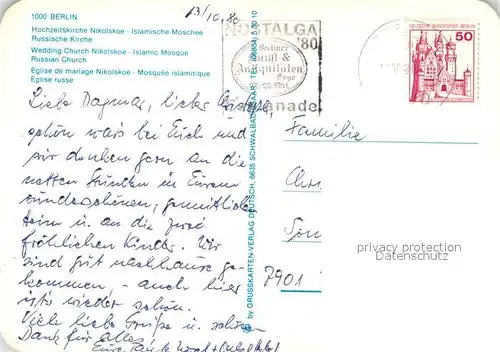 1000 BERLIN
Hochzeitskirche Nikolskoe - Islamische Moschee
Russische Kirche
Wedding Church Nikolskoe - Islamic Mosque
Russian Church
Eglise de mariage Nikolskoe - Mosquée islamitique
Eglise russe
13/10.80
NOSTALGA
'80
Berliner
Kunst &
Antiquitäten
Tage
DEUTSCHE BUNDESPOST BERLIN
50
Liebe Dagmar, lieber
schön wars bei Euch und
wir denken gern an die
netten Stunden in Eurem
wunderschönen, gemütlichen
Heim u. an die zwei
fröhlichen Kinder. Wir
sind gut nachhause ge-
kommen, - auch hier
ists wieder schön.
Viele liebe Grüße u. schönen
Dank für alles
Eure
© by GRUSSKARTEN-VERLAG DEUTSCH, 6635 SCHWALBACH/SAAR, TEL. (06834) 5 30 10
Familie
Chr
Son
7901
privacy protection
Datenschutz